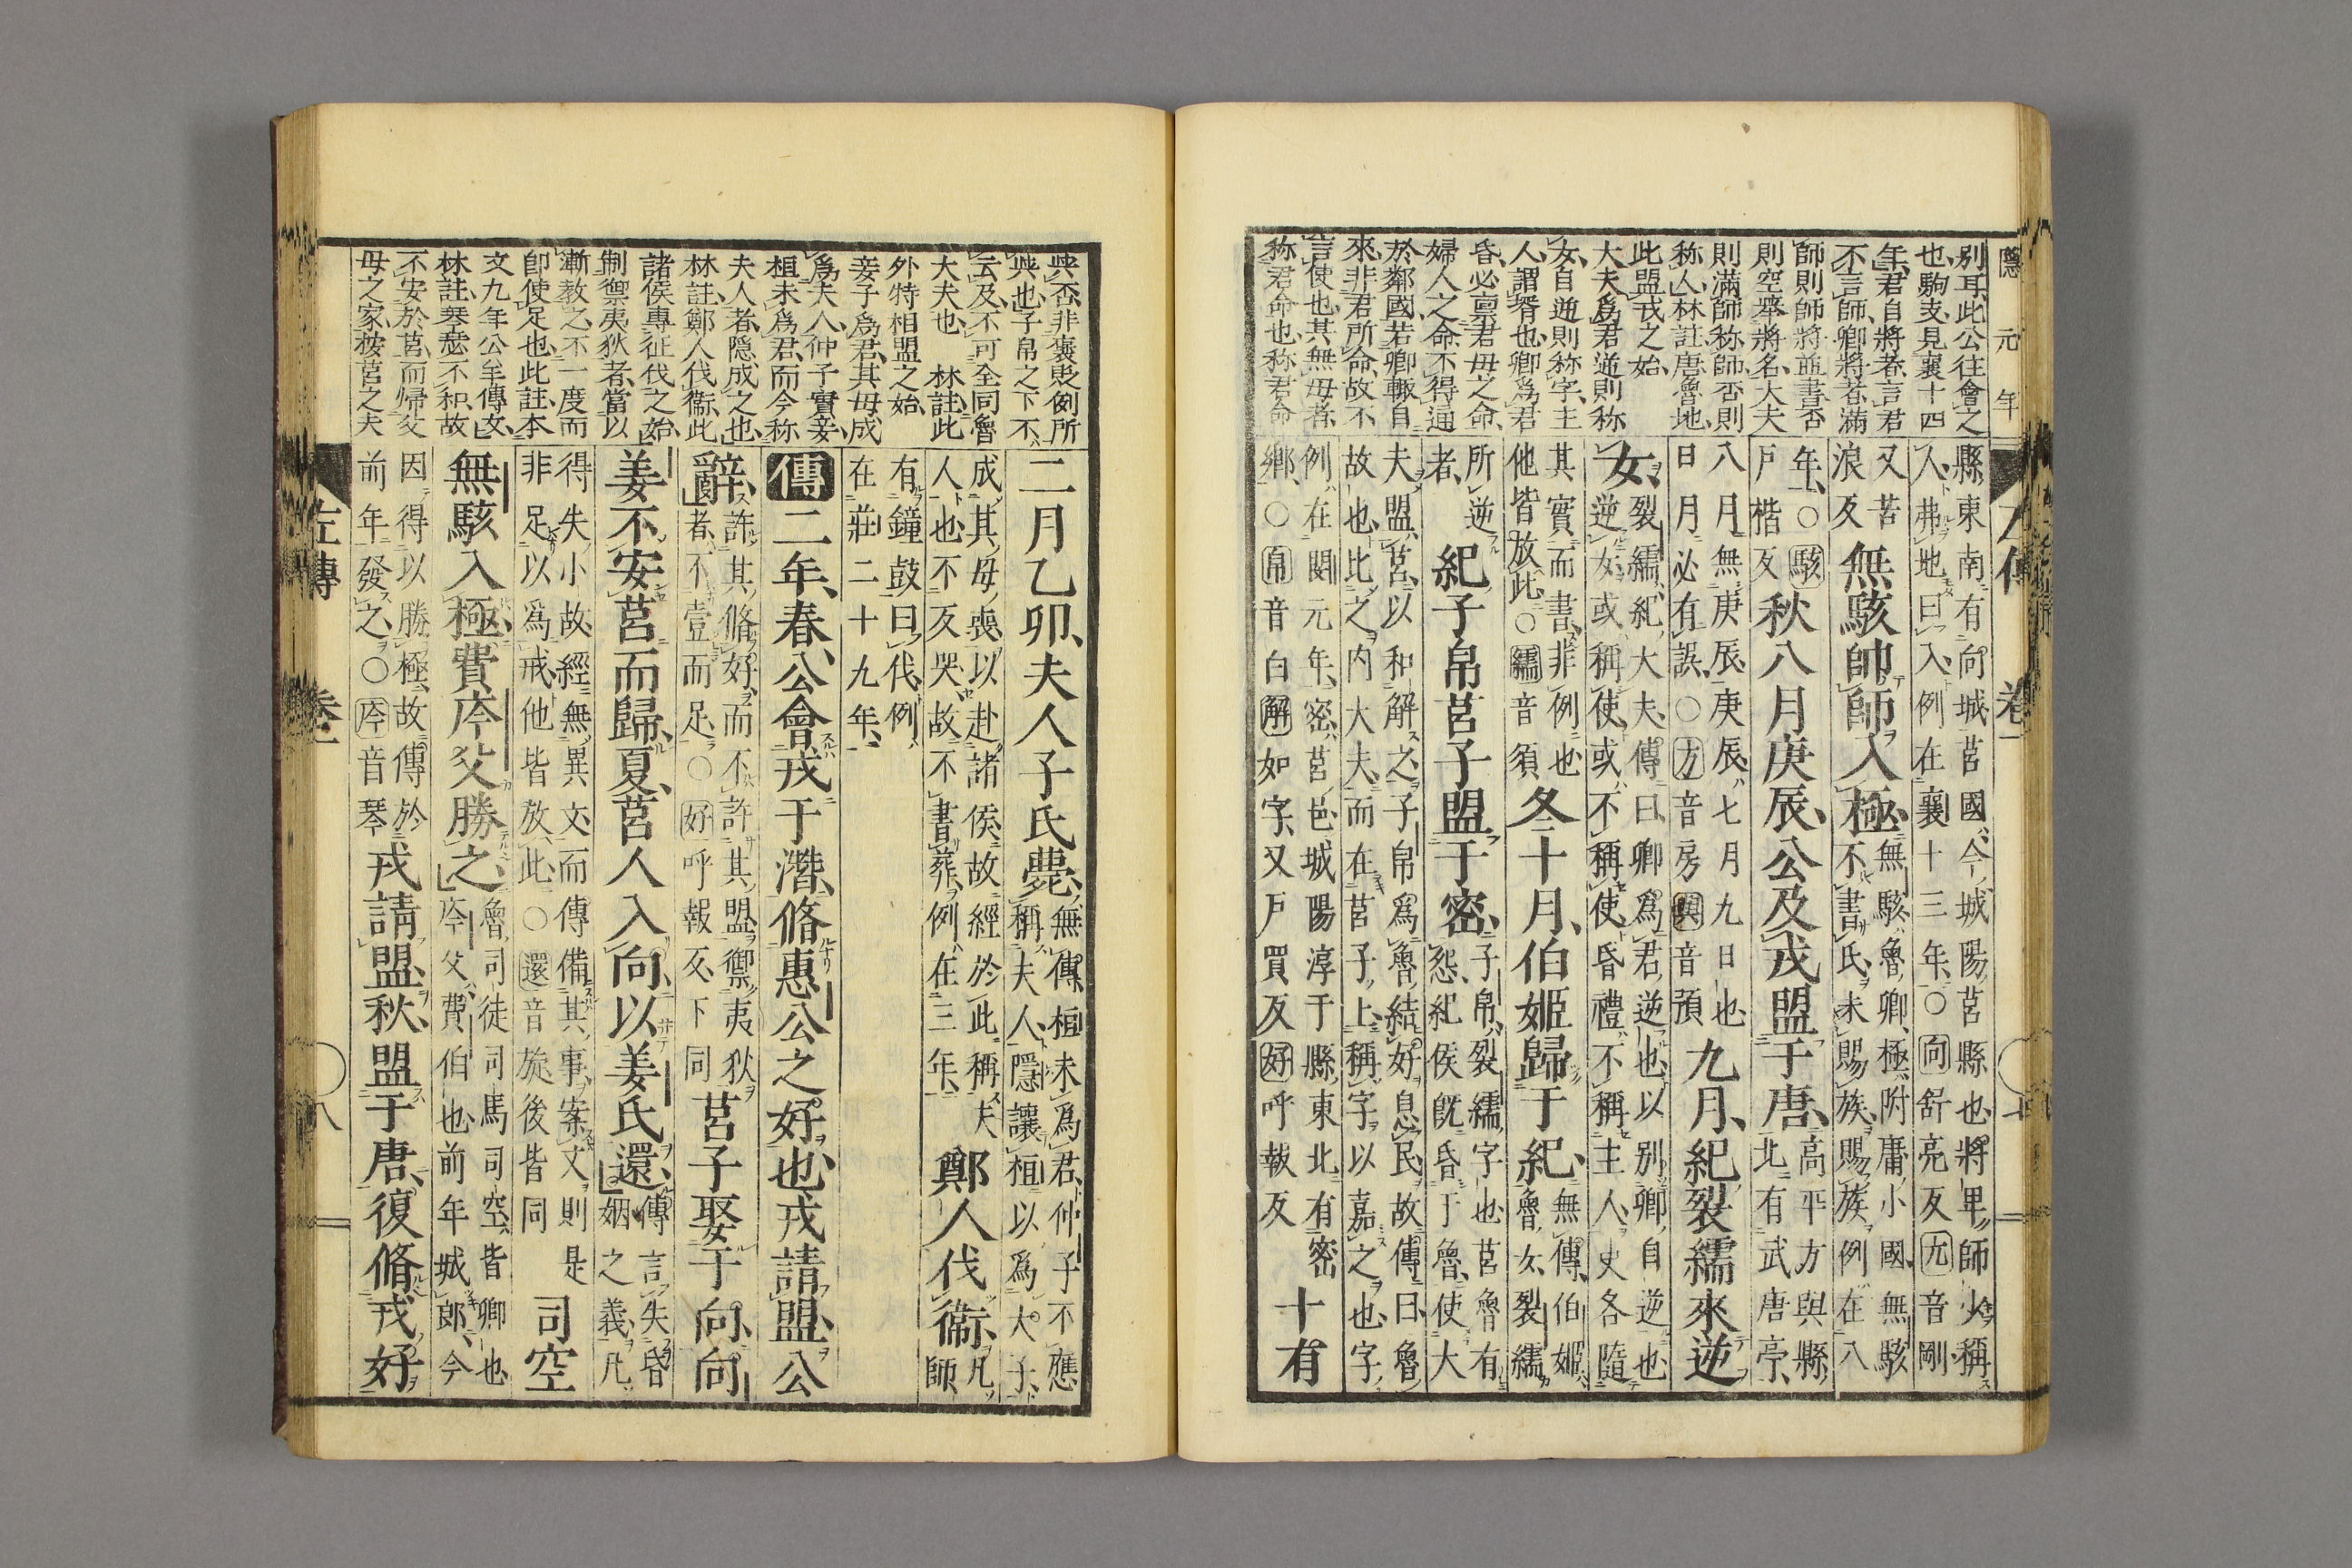 隱元年
別耳此公往會之
也駒支見襄十四
年君自將者言君
不言師卿將者滿
師則師將並書否
則空舉將名大夫
則滿師称師否則
称人林註唐魯地
此盟戎之始
大夫爲君逆則称
女自逆則称字主
人謂壻也卿爲君
昏必稟君母之命
婦人之命不得通
於鄰國若卿輙自
來非君所命故不
言使也其無母者
称君命也称君命
縣東南有向城莒國今城陽莒縣也將卑師少稱
人弗地曰入例在襄十三年○向舒亮反亢音剛
又苦
浪反
無駭帥師入極
無駭魯卿極附庸小國無駭
不書氏未賜族賜族例在八
年○駭
戶楷反
秋八月庚辰公及戎盟于唐
高平方與縣
北有武唐亭
八月無庚辰庚辰七月九日也
日月必有誤○方音房與音預
九月紀裂繻來逆
女
裂繻紀大夫傳曰卿爲君逆也以別卿自逆也
逆女或稱使或不稱使昏禮不稱主人史各隨
其實而書非例也
他皆放此○繻音須
冬十月伯姬歸于紀
無傳伯姬
魯女裂繻
所逆
者
紀子帛莒子盟于密
子帛裂繻字也莒魯有
怨紀侯旣昏于魯使大
夫盟莒以和解之子帛爲魯結好息民故傳曰魯
故也比之内大夫而在莒子上稱字以嘉之也字
例在閔元年密莒邑城陽淳于縣東北有密
鄉○帛音白解如字又戶買反好呼報反
十有
與否非褒貶例所
與也子帛之下不
云及不可全同魯
大夫也 林註此
外特相盟之始
妾子爲君其母成
爲夫人仲子實妾
桓未爲君而今称
夫人者隱成之也
林註鄭人伐衞此
諸侯專征伐之始
制禦夷狄者當以
漸教之不一度而
卽使足也此註本
文九年公羊傳文
林註琴瑟不和故
不安於莒而歸父
母之家按莒之夫
二月乙卯夫人子氏薨
無傳桓未爲君仲子不應
稱夫人隱讓桓以爲大子
成其母喪以赴諸侯故經於此稱夫
人也不反哭故不書葬例在三年
鄭人伐衞
凡
師
有鐘鼓曰伐例
在莊二十九年
傳二年春公會戎于潛脩惠公之好也戎請盟公
辭
許其脩好而不許其盟禦夷狄
者不壹而足○好呼報反下同
莒子娶于向向
姜不安莒而歸夏莒人入向以姜氏還
傳言失昏
姻之義凡
得失小故經無異文而傳備其事案文則是
非足以爲戒他皆放此○還音旋後皆同
司空
無駭入極費庈父勝之
魯司徒司馬司空皆卿也
庈父費伯也前年城郎今
因得以勝極故傳於
前年發之○庈音琴
戎請盟秋盟于唐復脩戎好
左傳 卷一 八